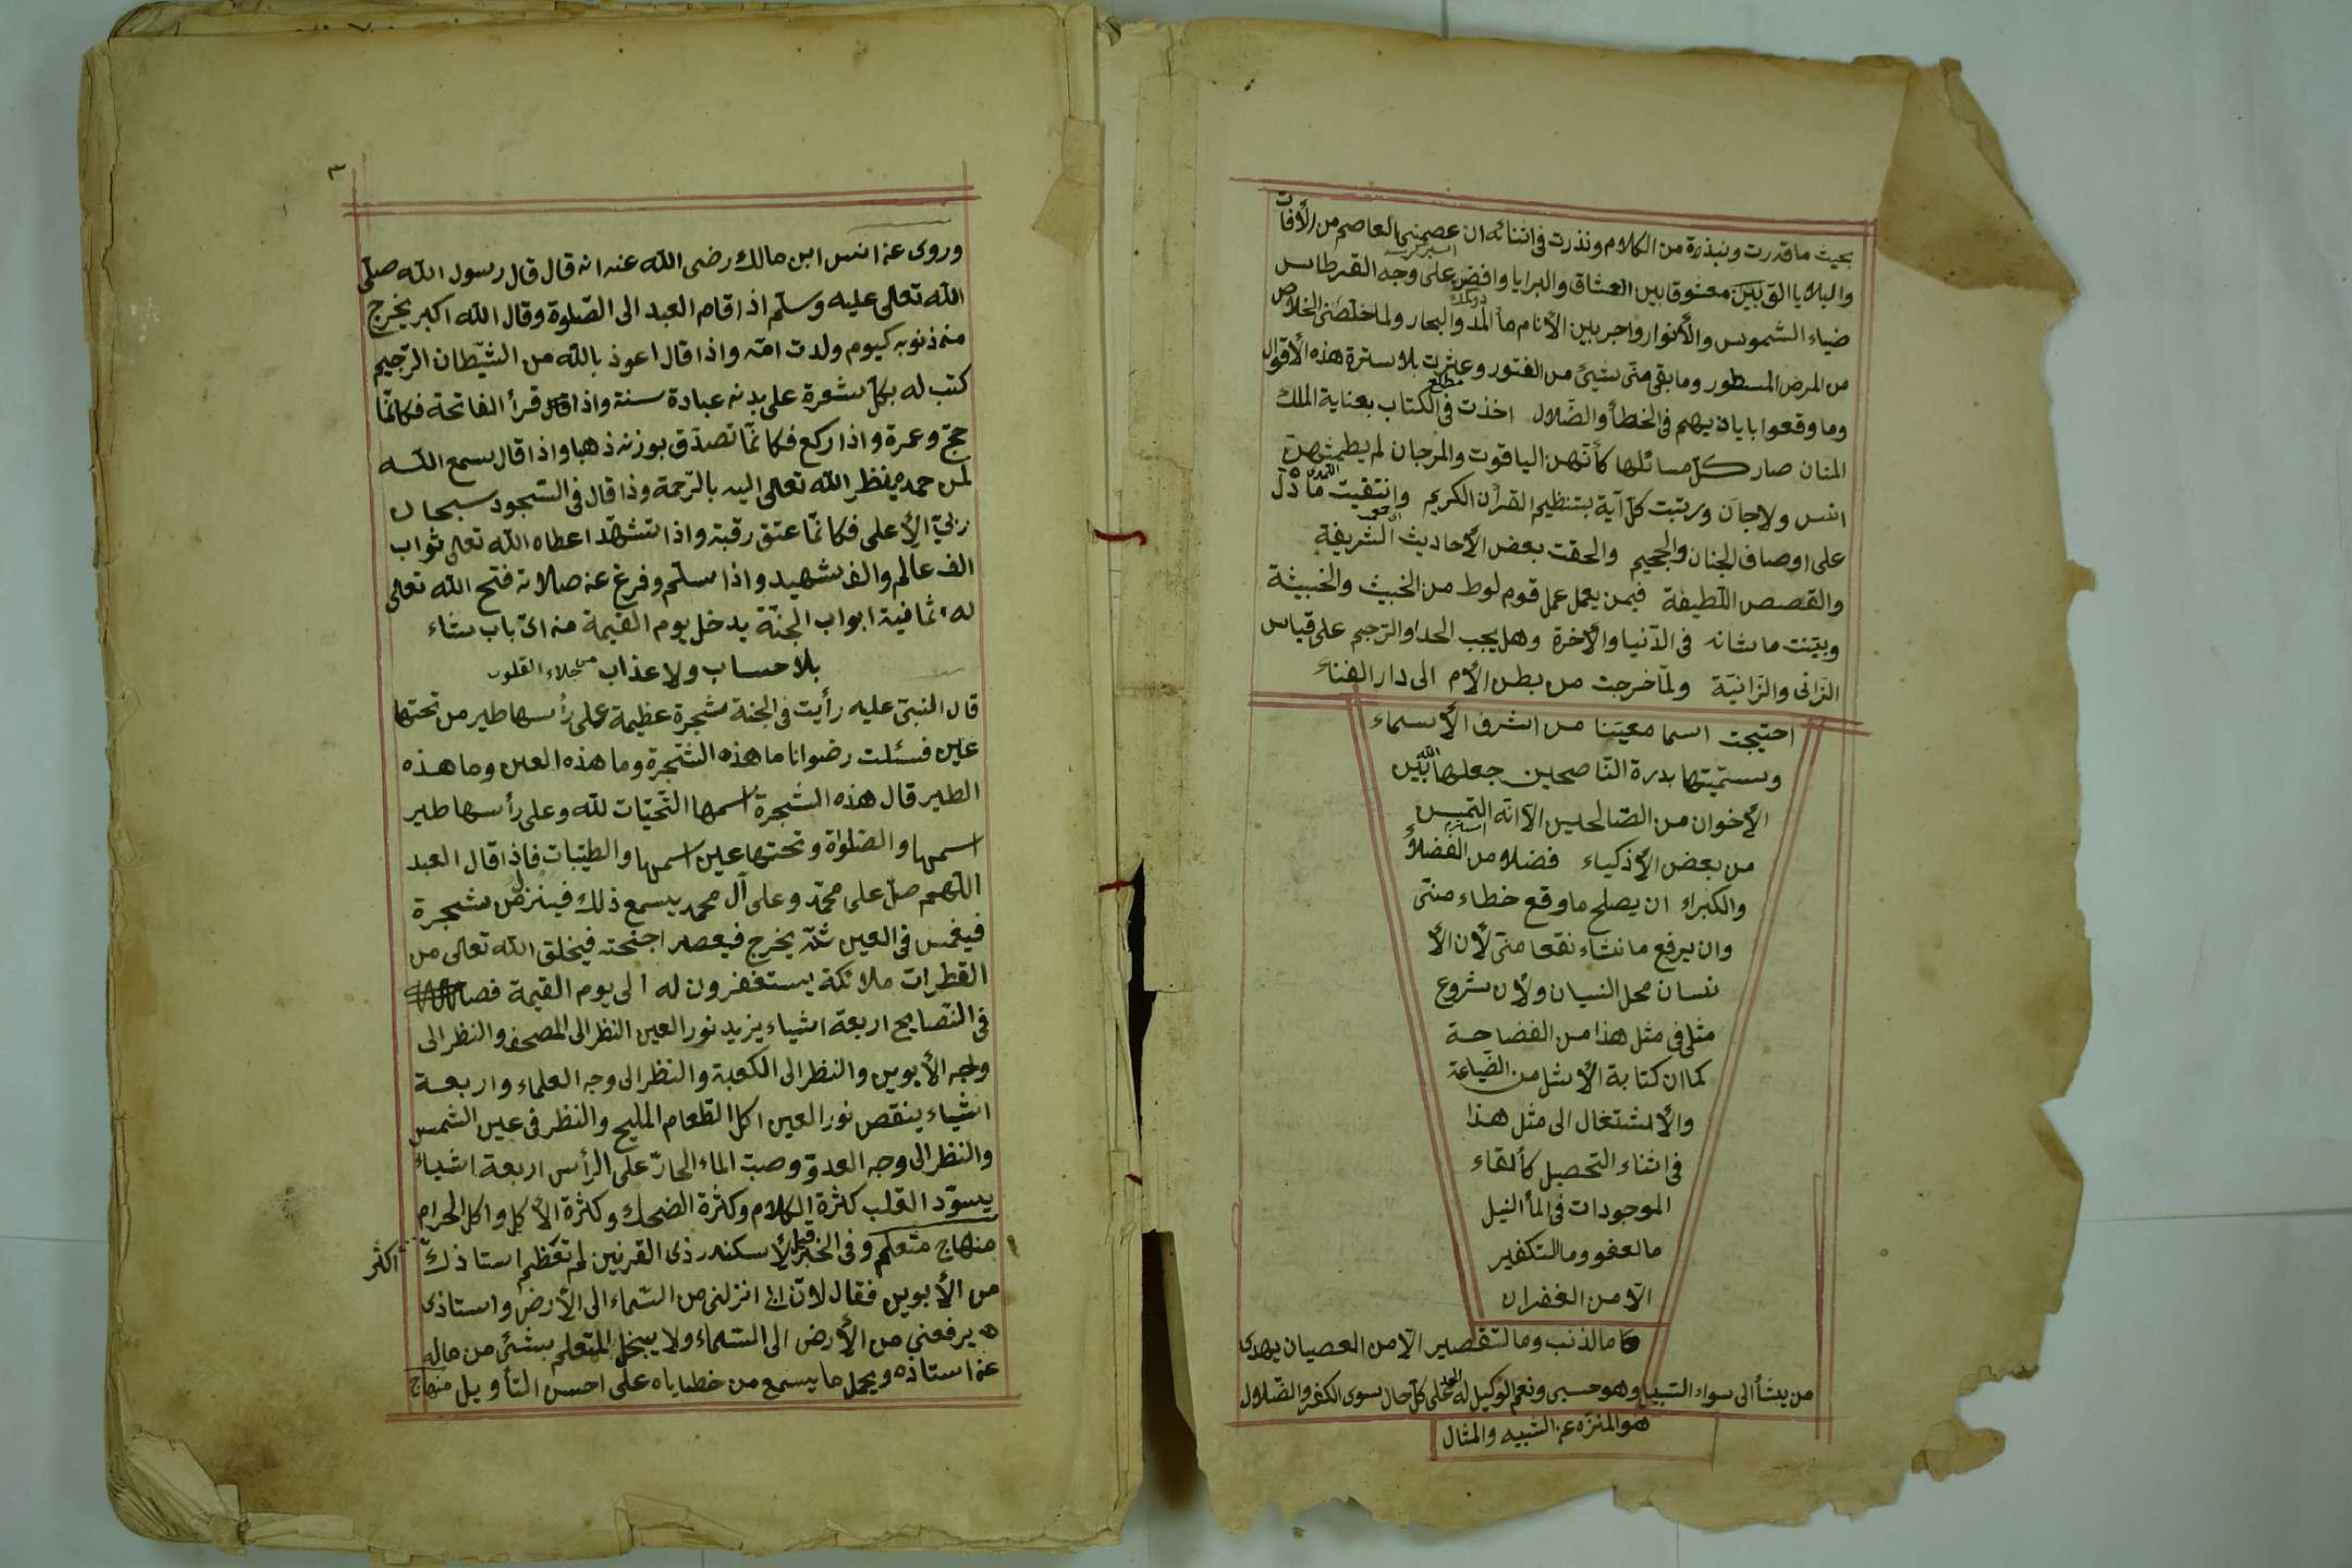 بحيث ما قدرت ونبذرة من الكلام ونذرت في اثنائه ان عصمني العاصم من الأفات
والبلايا القبين معشوقا بين العشاق والبرايا وافض على وجه القرطاس
ضياء الشموس والأنوار واجر بين الأنام ماء المد والبحار ولما خلصنى الخلاص
من المرض المسطور وما بقى منى شيئ من الفتور وعثرت بلا سترة هذه الأقوال
وما وقعوا بايات يهم في الخطأ والضلال اخذت في الكتاب بعناية الملك
المنان صار كل مسائلها كأنهن الياقوت والمرجان لم يطمثهن
انس ولا جان ورتبت كل آية بتنظيم القرأن الكريم وانتقيت ما دل
على اوصاف الجنان والجحيم والحقت بعض الأحاديث الشريفة
والقصص اللطيفة فيمن يعمل عمل قوم لوط من الخبيث والخبيثة
وبينت ما شانه في الدنيا والأخرة وهل يجب الحد او الرجم على قياس
الزانى والزانية ولما خرجت من بطن الأم الى دار الفناء
احتيجت اسما معينا من اشرف الأسماء
وسميتها بدرة الناصحين جعلها الله بين
الأخوان من الصالحين الا انه التمس
من بعض الأذكياء فضلا من الفضلأ
والكبراء ان يصلح ما وقع خطاء منى
وان يرفع ما نشاء نقعا منى لأن الأ
نسان محل النسيان ولأن شروع
مثلى في مثل هذا من الفضاحة
كما ان كتابة الأشل من الضياعة
والأشتغال الى مثل هذا
في اثناء التحصيل كألقاء
الموجودات في المأ النيل
ما لعفو وما التكفير
الا من الغفران
ما الذنب وما لتقصير الا من العصيان يهدى
من يشأ الى سواء السبيل وهو حسبى ونعم الوكيل له الحمد على كل حال سوى الكفر والضلال
هو المنزه عن الشبيه والمثال
٣
وروى عن انس ابن مالك رضى الله عنه انه قال قال رسول الله صلى
الله تعالى عليه وسلم اذا قام العبد الى الصلوة وقال الله اكبر يخرج
من ذنوبه كيوم ولدت امه واذا قال اعوذ بالله من الشيطان الرجيم
كتب له بكل شعرة على بدنه عبادة سنة واذا قرأ الفاتحة فكانما
حج وعمرة واذا ركع فكانما تصدق بوزنه ذهبا واذا قال سمع الله
لمن حمده ينظر الله تعالى اليه بالرحمة وذا قال في السجود سبحان
ربي الأعلى فكانما عتق رقبة واذا تشهد اعطاه الله تعالى ثواب
الف عالم والف شهيد واذا سلم وفرغ عن صلاته فتح الله تعالى
له ثمانية ابواب الجنة يدخل يوم القيمة من اى باب شاء
بلا حساب ولا عذاب من جلاء القلوب
قال النبى عليه رأيت في الجنة شجرة عظيمة على رأسها طير من تحتها
عين فسئلت رضوانا ما هذه الشجرة وما هذه العين وما هذه
الطير قال هذه الشجرة اسمها التحيات لله وعلى رأسها طير
اسمها والصلواة وتحتها عين اسمها والطيبات فاذا قال العبد
اللهم صل على محمد وعلى آل محمد يسمع ذلك فينزل من شجرة
فيغمس في العين ثم يخرج فيعصر اجنحته فيخلق الله تعالى من
القطرات ملائكة يستغفرون له الى يوم القيمة
في النصايح اربعة اشياء يزيد نور العين النظر الى المصحف والنظر الى
وجه الأبوين والنظر الى الكعبة والنظر الى وجه العلماء واربعة
اشياء ينقص نور العين اكل الطعام المليح والنظر في عين الشمس
والنظر الى وجه العدو وصب الماء الحار على الرأس اربعة اشياء
يسود القلب كثرة الكلام وكثرة الضحك وكثرة الأكل واكل الحرام
منهاج متعلم وفي الخبر قيل لأسكندر ذى القرنين لم تعظم استاذك اكثر
من الأبوين فقال لان ابى انزلنى من السماء الى الأرض واستاذى
يرفعنى من الأرض الى السماء ولا يبخل المتعلم بشئ من ماله
عن استاذه ويحمل ما يسمع من خطاياه على احسن التأويل منهاج